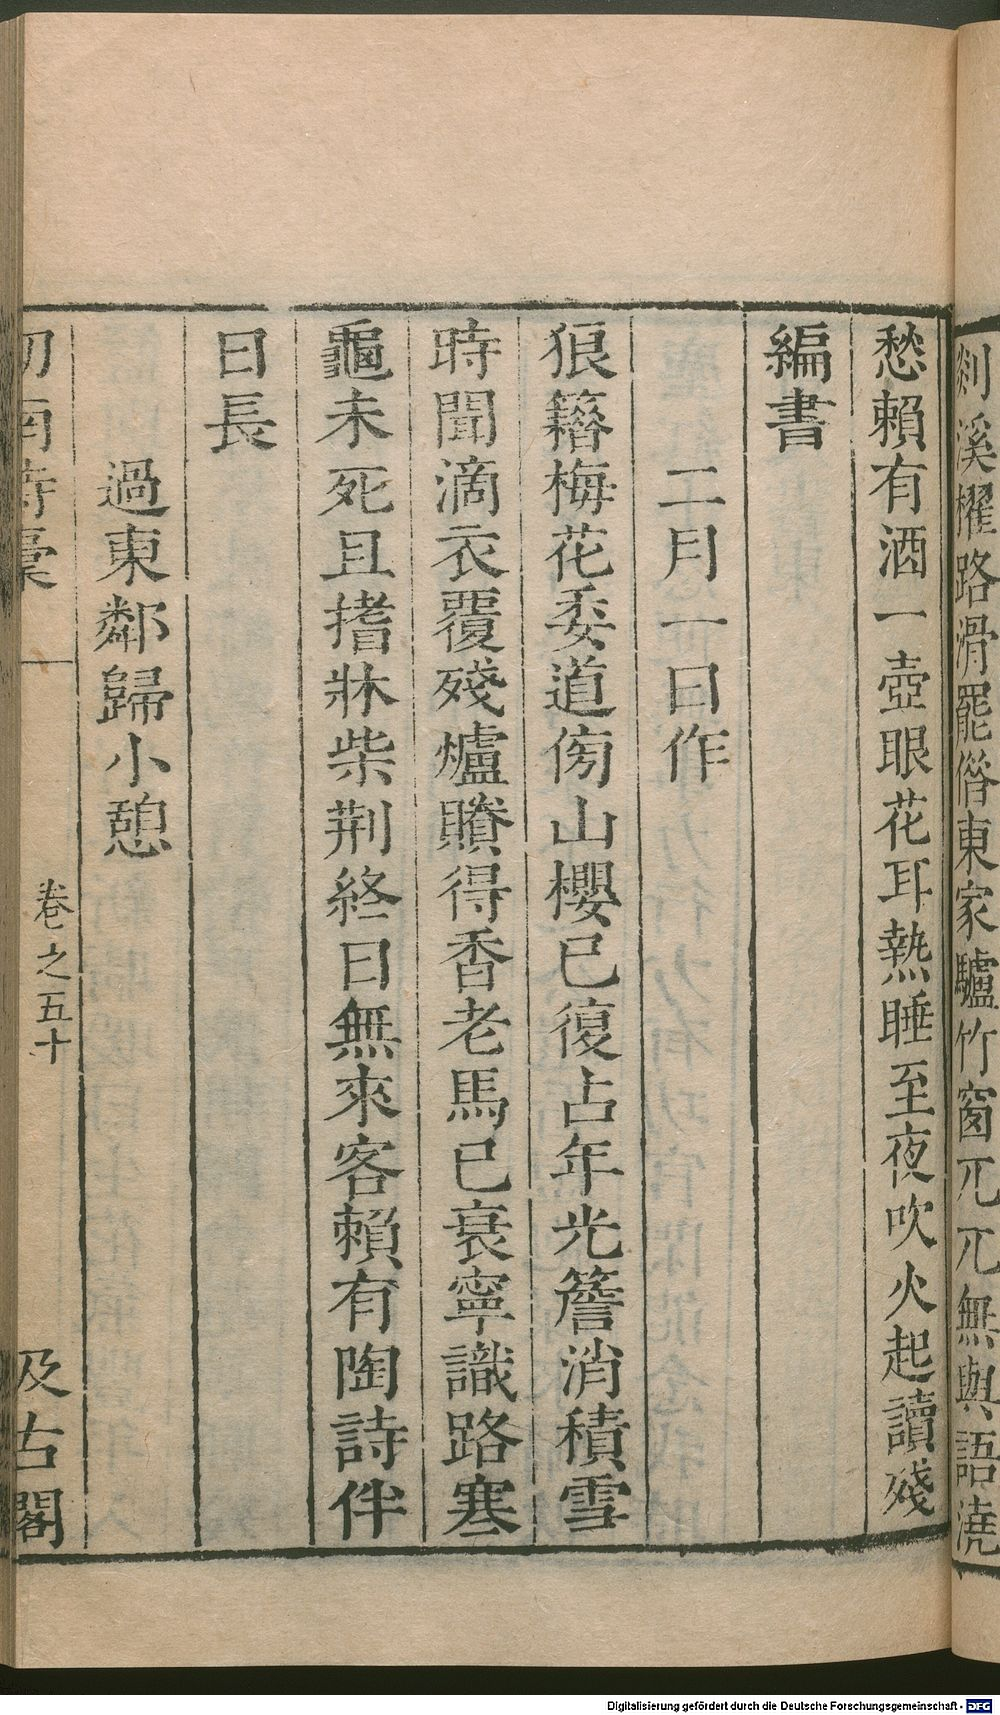 剡溪櫂路滑罷借東家驢竹窗兀兀無與語澆
愁賴有酒一壺眼花耳熱睡至夜吹火起讀殘
編書
二月一日作
狼籍梅花委道傍山櫻已復占年光簷消積雪
時聞滴衣覆殘爐賸得香老馬已衰寧識路寒
龜未死且搘牀柴荆終日無來客賴有陶詩伴
日長
過東鄰歸小憩
劒南詩稾
卷之五十
汲古閣
Digitalisierung gefördert durch die Deutsche Forschungsgemeinschaft - DFG